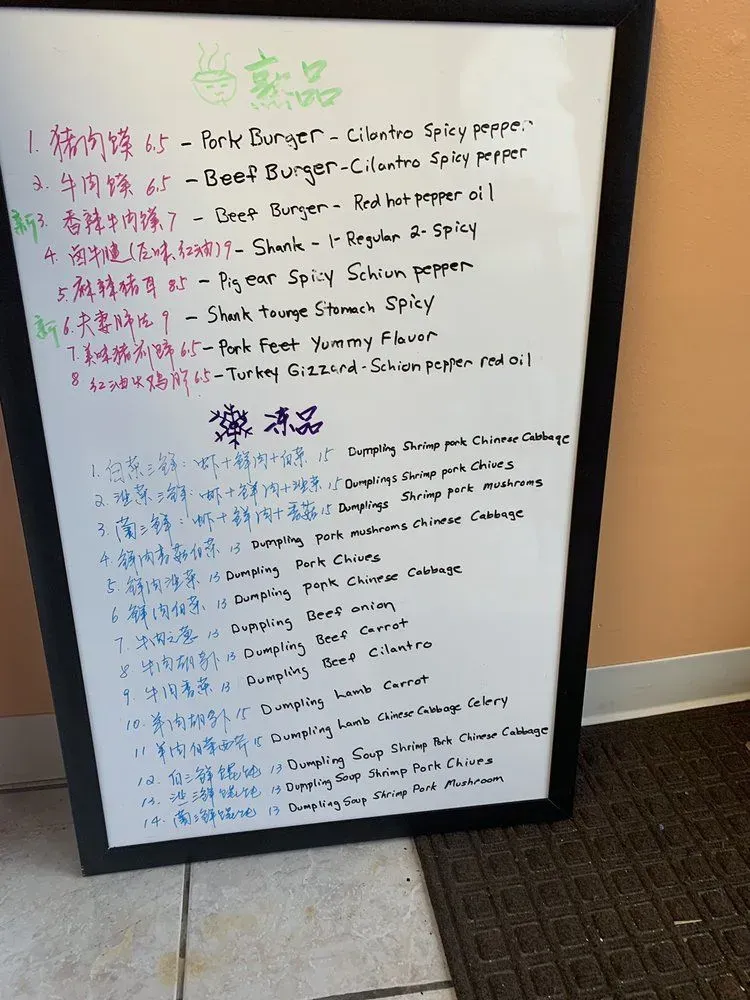 熟品
1. 猪肉馍 6.5 - Pork Burger - Cilantro Spicy pepper
2. 牛肉馍 6.5 - Beef Burger - Cilantro Spicy pepper
新 3. 香辣牛肉馍 7 - Beef Burger - Red hot pepper oil
4. 卤牛腱(五味.红油) 9 - Shank - 1- Regular 2- Spicy
5. 麻辣猪耳 8.5 - Pig ear Spicy Schiun pepper
新 6. 夫妻肺片 9 - Shank tounge Stomach Spicy
7. 美味猪前蹄 6.5 - Pork Feet Yummy Flavor
8. 红油火鸡胗 6.5 - Turkey Gizzard - Schiun pepper red oil
冻品
1. 白菜三鲜: 虾+鲜肉+白菜 15 Dumpling Shrimp pork Chinese Cabbage
2. 韭菜三鲜: 虾+鲜肉+韭菜 15 Dumplings Shrimp pork Chives
3. 菌三鲜: 虾+鲜肉+香菇 15 Dumplings Shrimp pork mushroms
4. 鲜肉香菇白菜 13 Dumpling pork mushroms Chinese Cabbage
5. 鲜肉韭菜 13 Dumpling Pork Chives
6 鲜肉白菜 13 Dumpling pork Chinese Cabbage
7. 牛肉大葱 13 Duppling Beef onion
8 牛肉胡萝卜 13 Dumpling Beef Carrot
9. 牛肉香菜 13 Dumpling Beef Cilantro
10. 羊肉胡萝卜 15 Dumpling Lamb Carrot
11 羊肉白菜西芹 15 Dumpling Lamb Chinese Cabbage Celery
12. 白三鲜馄饨 13 Dumpling Soup Shrimp Pork Chinese Cabbage
13. 韭三鲜馄饨 13 Dumpling Soup Shrimp Pork Chives
14. 菌三鲜馄饨 13 Dumpling Soup Shrimp Pork Mushroom